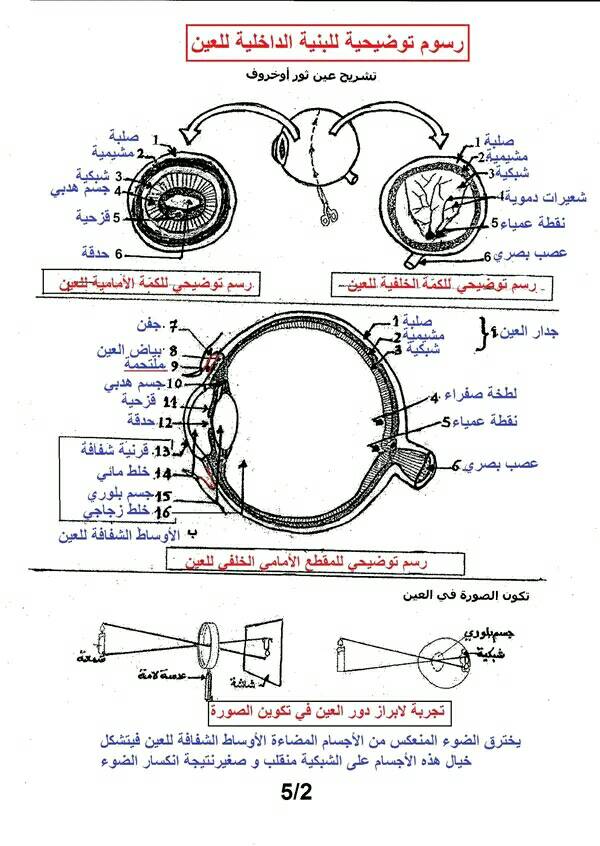 رسوم توضيحية للبنية الداخلية للعين
تشريح عين ثور أوخروف
صلبة 1
مشيمية 2
شبكية 3
شعيرات دموية 4
نقطة عمياء 5
عصب بصري 6
صلبة 1
مشيمية 2
شبكية 3
جسم هدبي 4
قزحية 5
حدقة 6
رسم توضيحي للكمّة الخلفية للعين
رسم توضيحي للكمّة الأمامية للعين
جدار العين
صلبة 1
مشيمية 2
شبكية 3
لطخة صفراء 4
نقطة عمياء 5
عصب بصري 6
جفن 7
بياض العين 8
ملتحمة 9
جسم هدبي 10
قزحية 11
حدقة 12
قرنية شفافة 13
خلط مائي 14
جسم بلوري 15
خلط زجاجي 16
ب الأوساط الشفافة للعين
رسم توضيحي للمقطع الأمامي الخلفي للعين
تكون الصورة في العين
جسم بلوري
شبكية
شمعة
عدسة لامة
شاشة
تجربة لابراز دور العين في تكوين الصورة
يخترق الضوء المنعكس من الأجسام المضاءة الأوساط الشفافة للعين فيتشكل
خيال هذه الأجسام على الشبكية منقلب و صغيرنتيجة انكسار الضوء
5/2